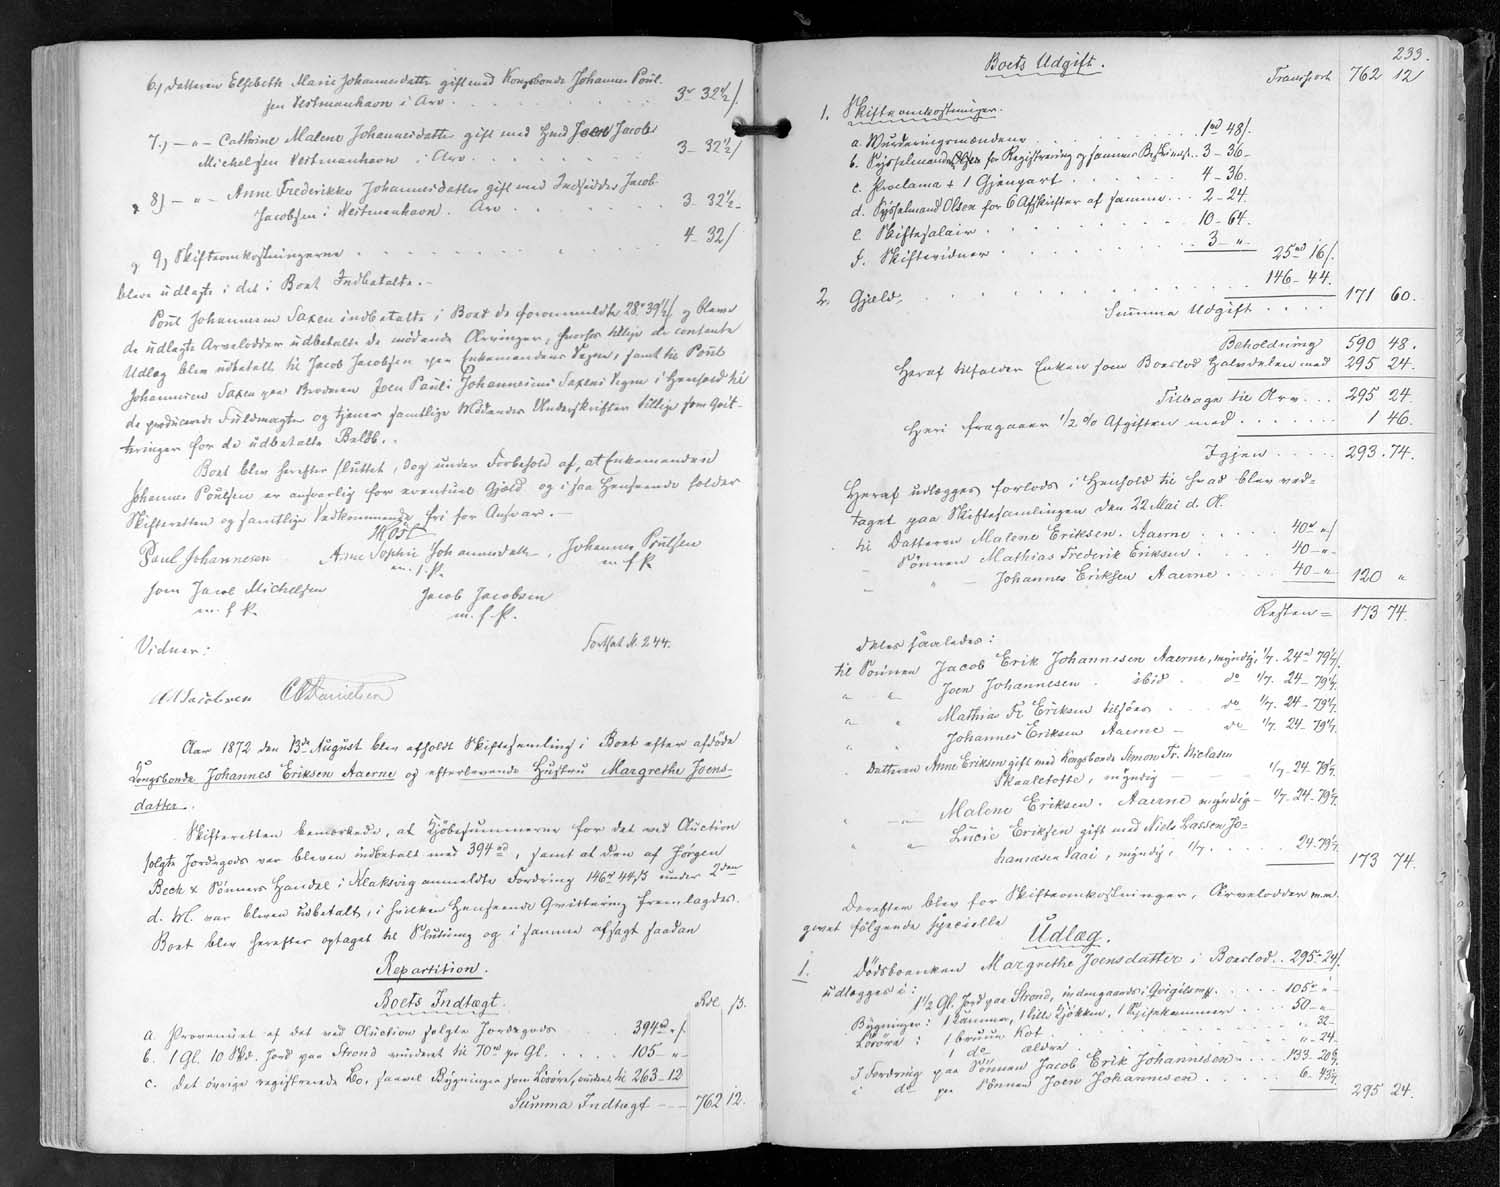 6,) Datteren Elsebeth Marie Johannesdatter gift med Kongsbonde Johannes Poul-
sen Vestmanhavn i Arv . . . 3 32½/.
7.) — „ — Cathrine Malene Johannesdatter gift med Joen Jacob
Michelsen Vestmanhavn i Arv . . . 3 – 32½/
8) — „ — Anne Frederikke Johannesdatter gift med Indsidder Jacob
Jacobsen i Vestmanhavn. Arv . . . 3 – 32½ –
og 9) Skifteomkostningerne . . . 4 – 32/
bleve udlagte i det i Boet Indbetalte. –
Poul Johannesen Saxen indbetalte i Boet de forommeldte 28 39½/ og bleve
de udlagte Arvelodder udbetalte de mødende Arvinger, hvorhos tillige de contante
Udlæg blev udbetalt til Jacob Jacobsen paa Enkemandens Vegne, samt til Poul
Johannesen Saxen paa Broderen Joen Pauli Johannesens Saxens Vegne i Henhold til
de producerede Fuldmagter og tjener samtlige Mødendes Underskrifter tillige som Qvit-
teringer for de udbetalte Beløb. –
Boet blev herefter sluttet, dog under Forbehold af, at Enkemanden
Johannes Poulsen er ansvarlig for eventuel Gjæld og i saa Henseende holder
Skifteretten og samtlige Vedkommende fri for Ansvar. –
Müst
Paul Johannesen Anne Sophie Johannesdatter, Johannes Poulsen
m. f. P. m f P
Joen Jacob Michelsen Jacob Jacobsen
m. f P. m. f. P.
Vidner: Fortsat N. 244.
A Jacobsen Danielsen
Aar 1872 den 13de August blev afholdt Skiftesamling i Boet efter afdøde
Kongsbonde Johannes Eriksen Aaerne og efterlevende Hustru Margrethe Joens-
datter.
Skifteretten bemærkede, at Kjøbesummerne for det ved Auction
solgte Jordegods var bleven indbetalt med 394 rd, samt at den af Jørgen
Bech & Sønners Handel i Klaksvig anmeldte Fordring 146 44 ß under 2den
d. M. var bleven udbetalt, i hvilken Henseende Qvittering fremlagdes.
Boet blev herefter optaget til Slutning og i samme afsagt saadan
Repartition.
Boets Indtægt. Rdl ß.
a Provenuet af det ved Auction solgte Jordegods 394 rd „ /.
b. 1 Gl. 10 Skd. Jord paa Strond vurderet til 70 rd pr Gl. . . . 105 – „ –
c. Det øvrige registrerede Bo, saavel Bygninger som Løsøre, vurderet til 263 – 12
Summa Indtægt – – – 762 12.
233.
Boets Udgift.
Transport 762 12
1. Skifteomkostninger.
a. Vurderingsmændene . . . 1 rd 48/.
b. Sysselmand Olsen for Registrering og sammes Beskrivelse . . 3 – 36 –
c. Proclama + 1 Gjenpart . . . 4 – 36.
d. Sysselmand Olsen for 6 Afskrifter af samme . . . 2 – 24.
e. Skiftesalair . . . 10 – 64.
f. Skiftevidner . . . 3 – „ – 25 rd 16/.
2. Gjæld . . . 146 – 44.
Summa Udgift . . . 171 60.
Beholdning 590 48.
Heraf tilfalder Enken som Boeslod Halvdelen med 295 24.
Tilbage til Arv . . . 295 24.
Heri fragaaer ½ % Afgiften med . . . 1 46.
Igjen . . . 293. 74.
Heraf udlægges forlods i Henhold til hvad blev ved-
taget paa Skiftesamlingen den 22 Mai d. A.
til Datteren Malene Eriksen. Aaerne . . . 40 rd „/
„ Sønnen Mathias Frederik Eriksen . . . 40 – „ –
„ „ – Johannes Eriksen Aaerne . . . 40 – „ 120 „
Resten = 173 74.
deles saaledes:
til Sønnen Jacob Erik Johannesen Aaerne, myndig, 1/7. 24 rd 79 1/7/.
„ „ Joen Johannesen . ibid . do 1/7. 24 – 79 1/7.
„ „ Mathias Fr. Eriksen tilhørs . . do 1/7. 24 – 79 1/7.
„ „ Johannes Eriksen Aaerne – do 1/7. 24. 79 1/7.
„ Datteren Anne Eriksen gift med Kongsbonde Simon Fr. Niclasen
Skaaletofte, myndig — „ 1/7 – 24 – 79 1/7.
„ – „ – Malene Eriksen. Aaerne myndig – 1/7. 24 – 79 1/7.
„ „ Lucie Eriksen gift med Niels Lassen Jo-
hannesen Saai, myndig, 1/7 . . . 24 – 79 1/7. 173 74.
Derefter blev for Skifteomkostninger, Arvelodder m.m.
givet følgende specielle
Udlæg.
1. Dødsboenken Margrethe Joensdatter i Boeslod . . 295 – 24/.
udlægges i:
1½ Gl. Jord paa Strond, indengaards i Qvigilsmyr . . . 105 „ –
Bygninger: 1 Kammer, 1 lille Kjøkken, 1 Spisekammer . . . 50 – „ –
Løsøre: 1 bruun Kot . . . „ 32 –
1 do ældre . . . „ – 24.
I Fordring paa Sønnen Jacob Erik Johannesen . . . 133. 20
i do paa Sønnen Joen Johannesen . . . 6 – 43 295 24.